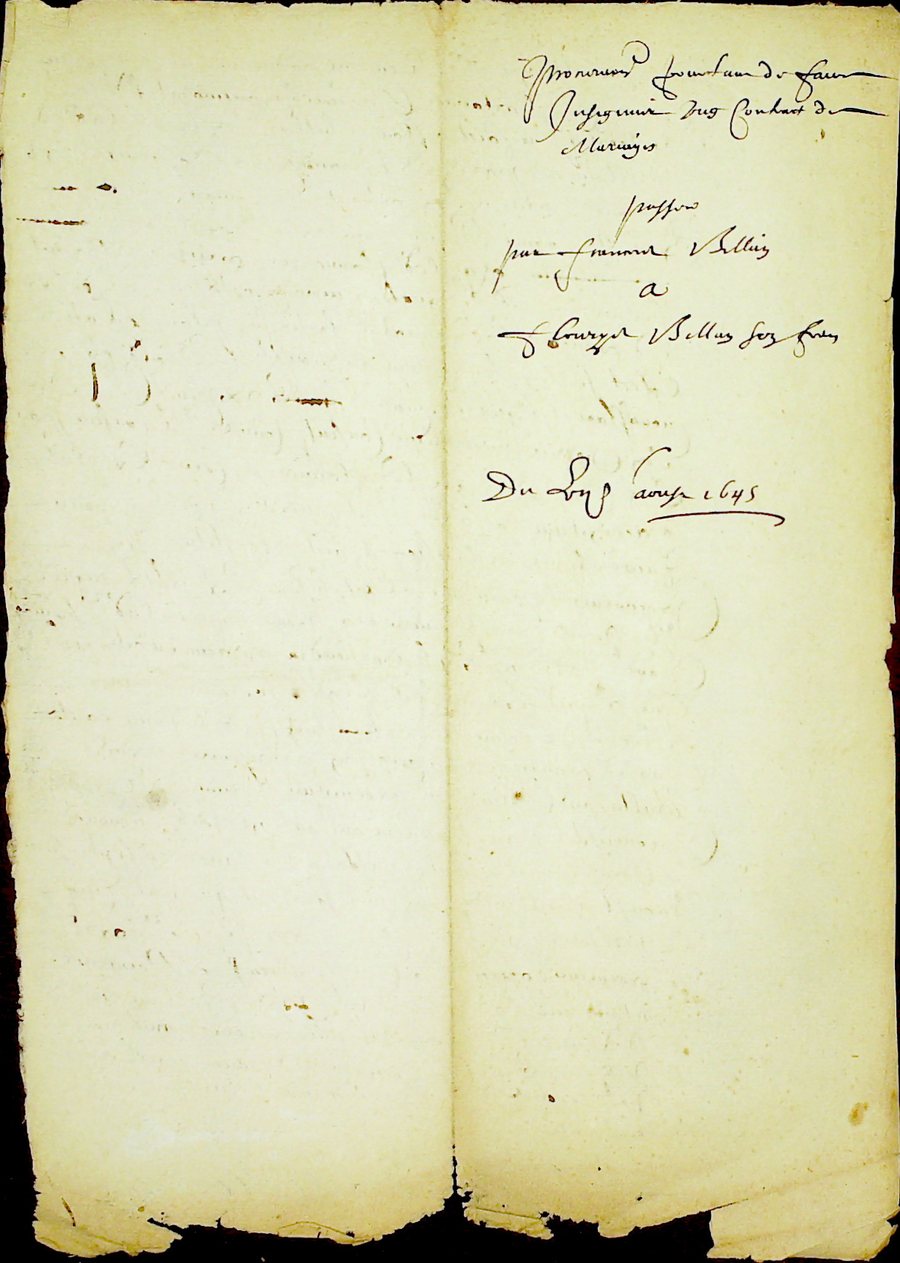 Procuration portant de faire
Insignuer ung Contract de
Mariage
passee
par francois Bellin
a
Bellin son frere
Du aoust 1645